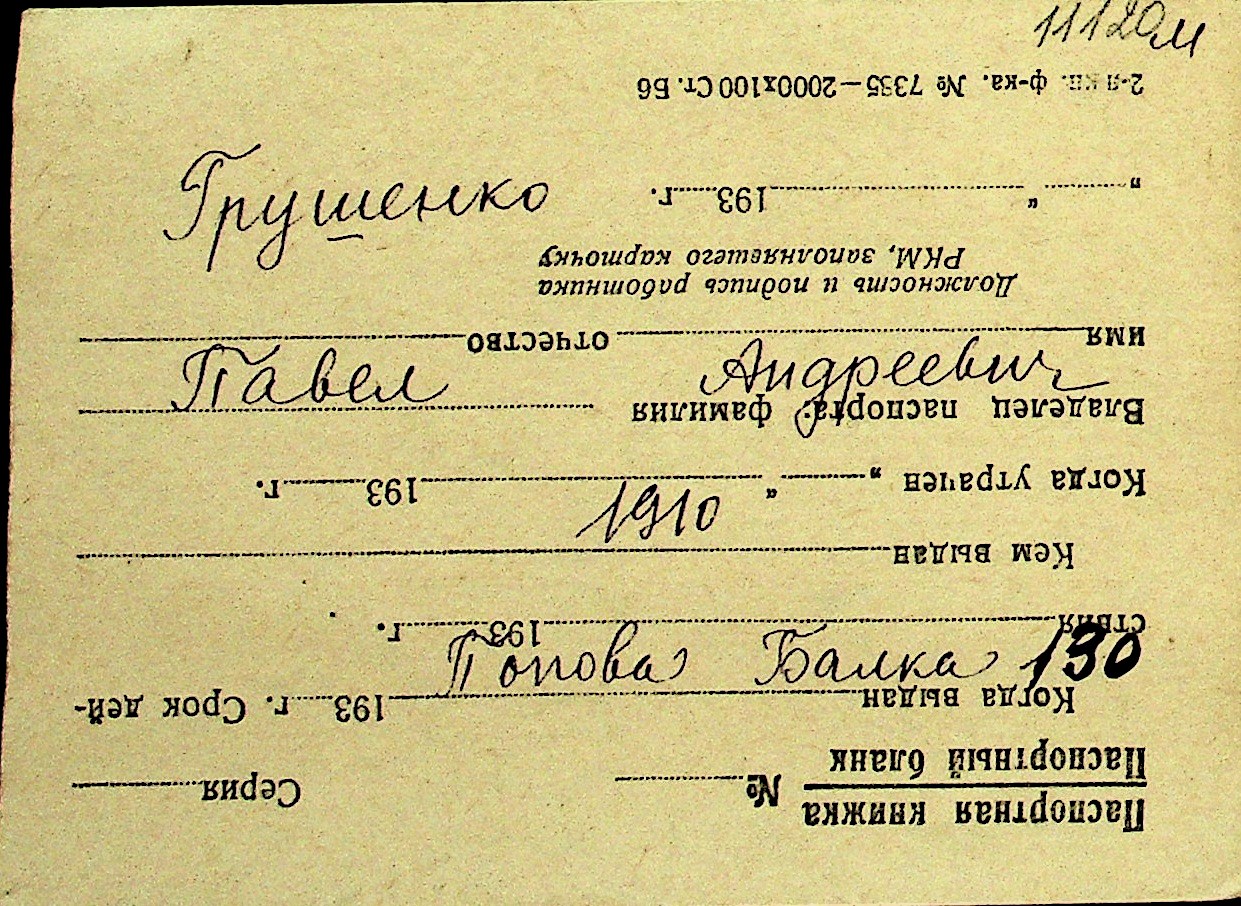 11120м
Грушенко
Павел Андреевич
1910
Попова Балка 130
Паспортная книжка
Паспортный бланк № Серия
Когда выдан 193 г. Срок дей-
ствия 193 г.
Кем выдан
Когда утрачен „ “ 193 г.
Владелец паспорта: фамилия
имя отчество
Должность и подпись работника
РКМ, заполнявшего карточку
„ “ 193 г.
2-я кн. ф-ка. № 7335—2000х100 Ст. Б6